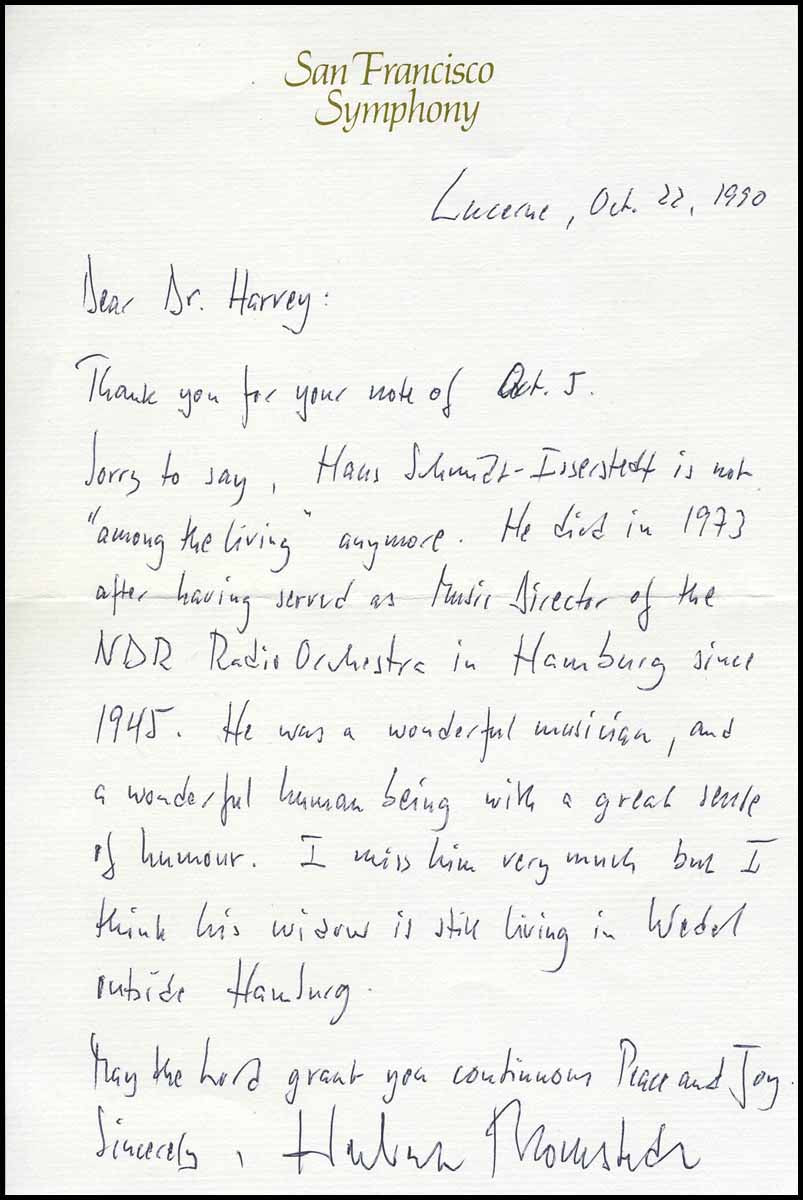 San Francisco
Symphony
Lucerne, Oct. 22, 1990
Dear Dr. Harvey:
Thank you for your note of Oct. 5.
Sorry to say, Hans Schmidt-Isserstedt is not
"among the living" anymore. He died in 1973
after having served as Music Director of the
NDR Radio Orchestra in Hamburg since
1945. He was a wonderful musician, and
a wonderful human being with a great sense
of humour. I miss him very much but I
think his widow is still living in Wedel
outside Hamburg.
May the Lord grant you continuous Peace and Joy.
Sincerely, Herbert Blomstedt